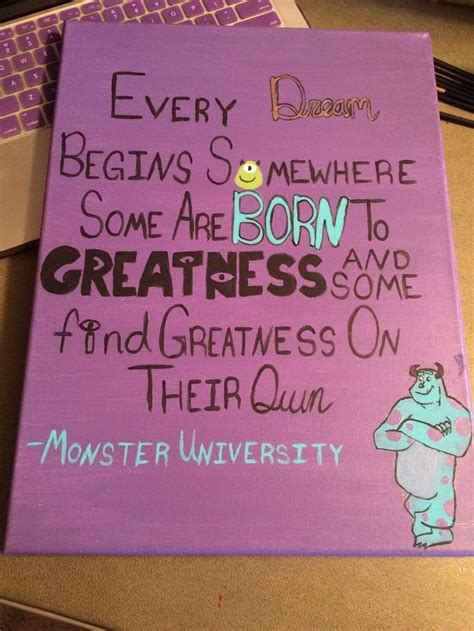 EVERY Dream
BEGINS SOMEWHERE
SOME ARE BORN TO
GREATNESS AND SOME
find GREATNESS ON
THEIR Own
-MONSTER UNIVERSITY